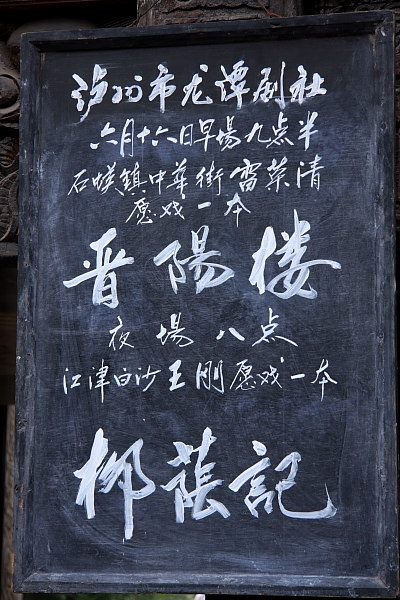 泸州市龙谭剧社
六月十六日早場九点半
石蟆鎮中華街雷荣清
愿戏一本
晋陽楼
夜場八点
江津白沙王刚愿戏一本
柳蔭記